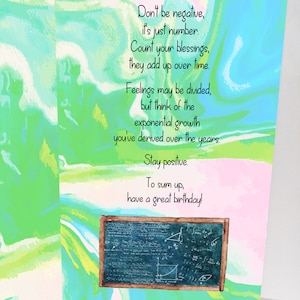 Don't be negative,
it's just number.
Count your blessings,
they add up over time.
Feelings may be divided,
but think of the
exponential growth
you've derived over the years.
Stay positive.
To sum up,
have a great birthday!